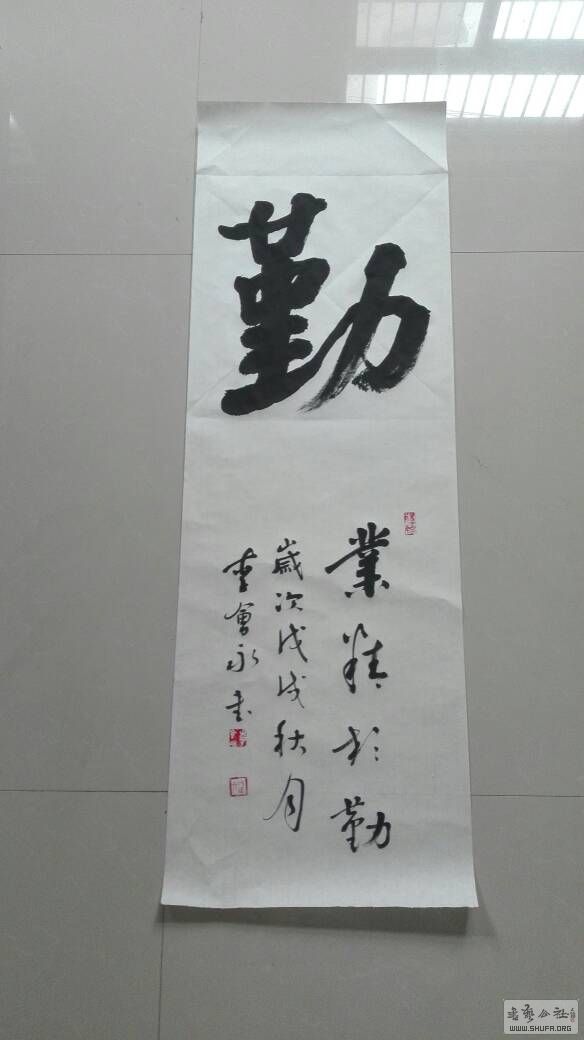 勤
業精於勤
歲次戊戌秋月
李會永書
書藝公社
WWW.SHUFA.ORG